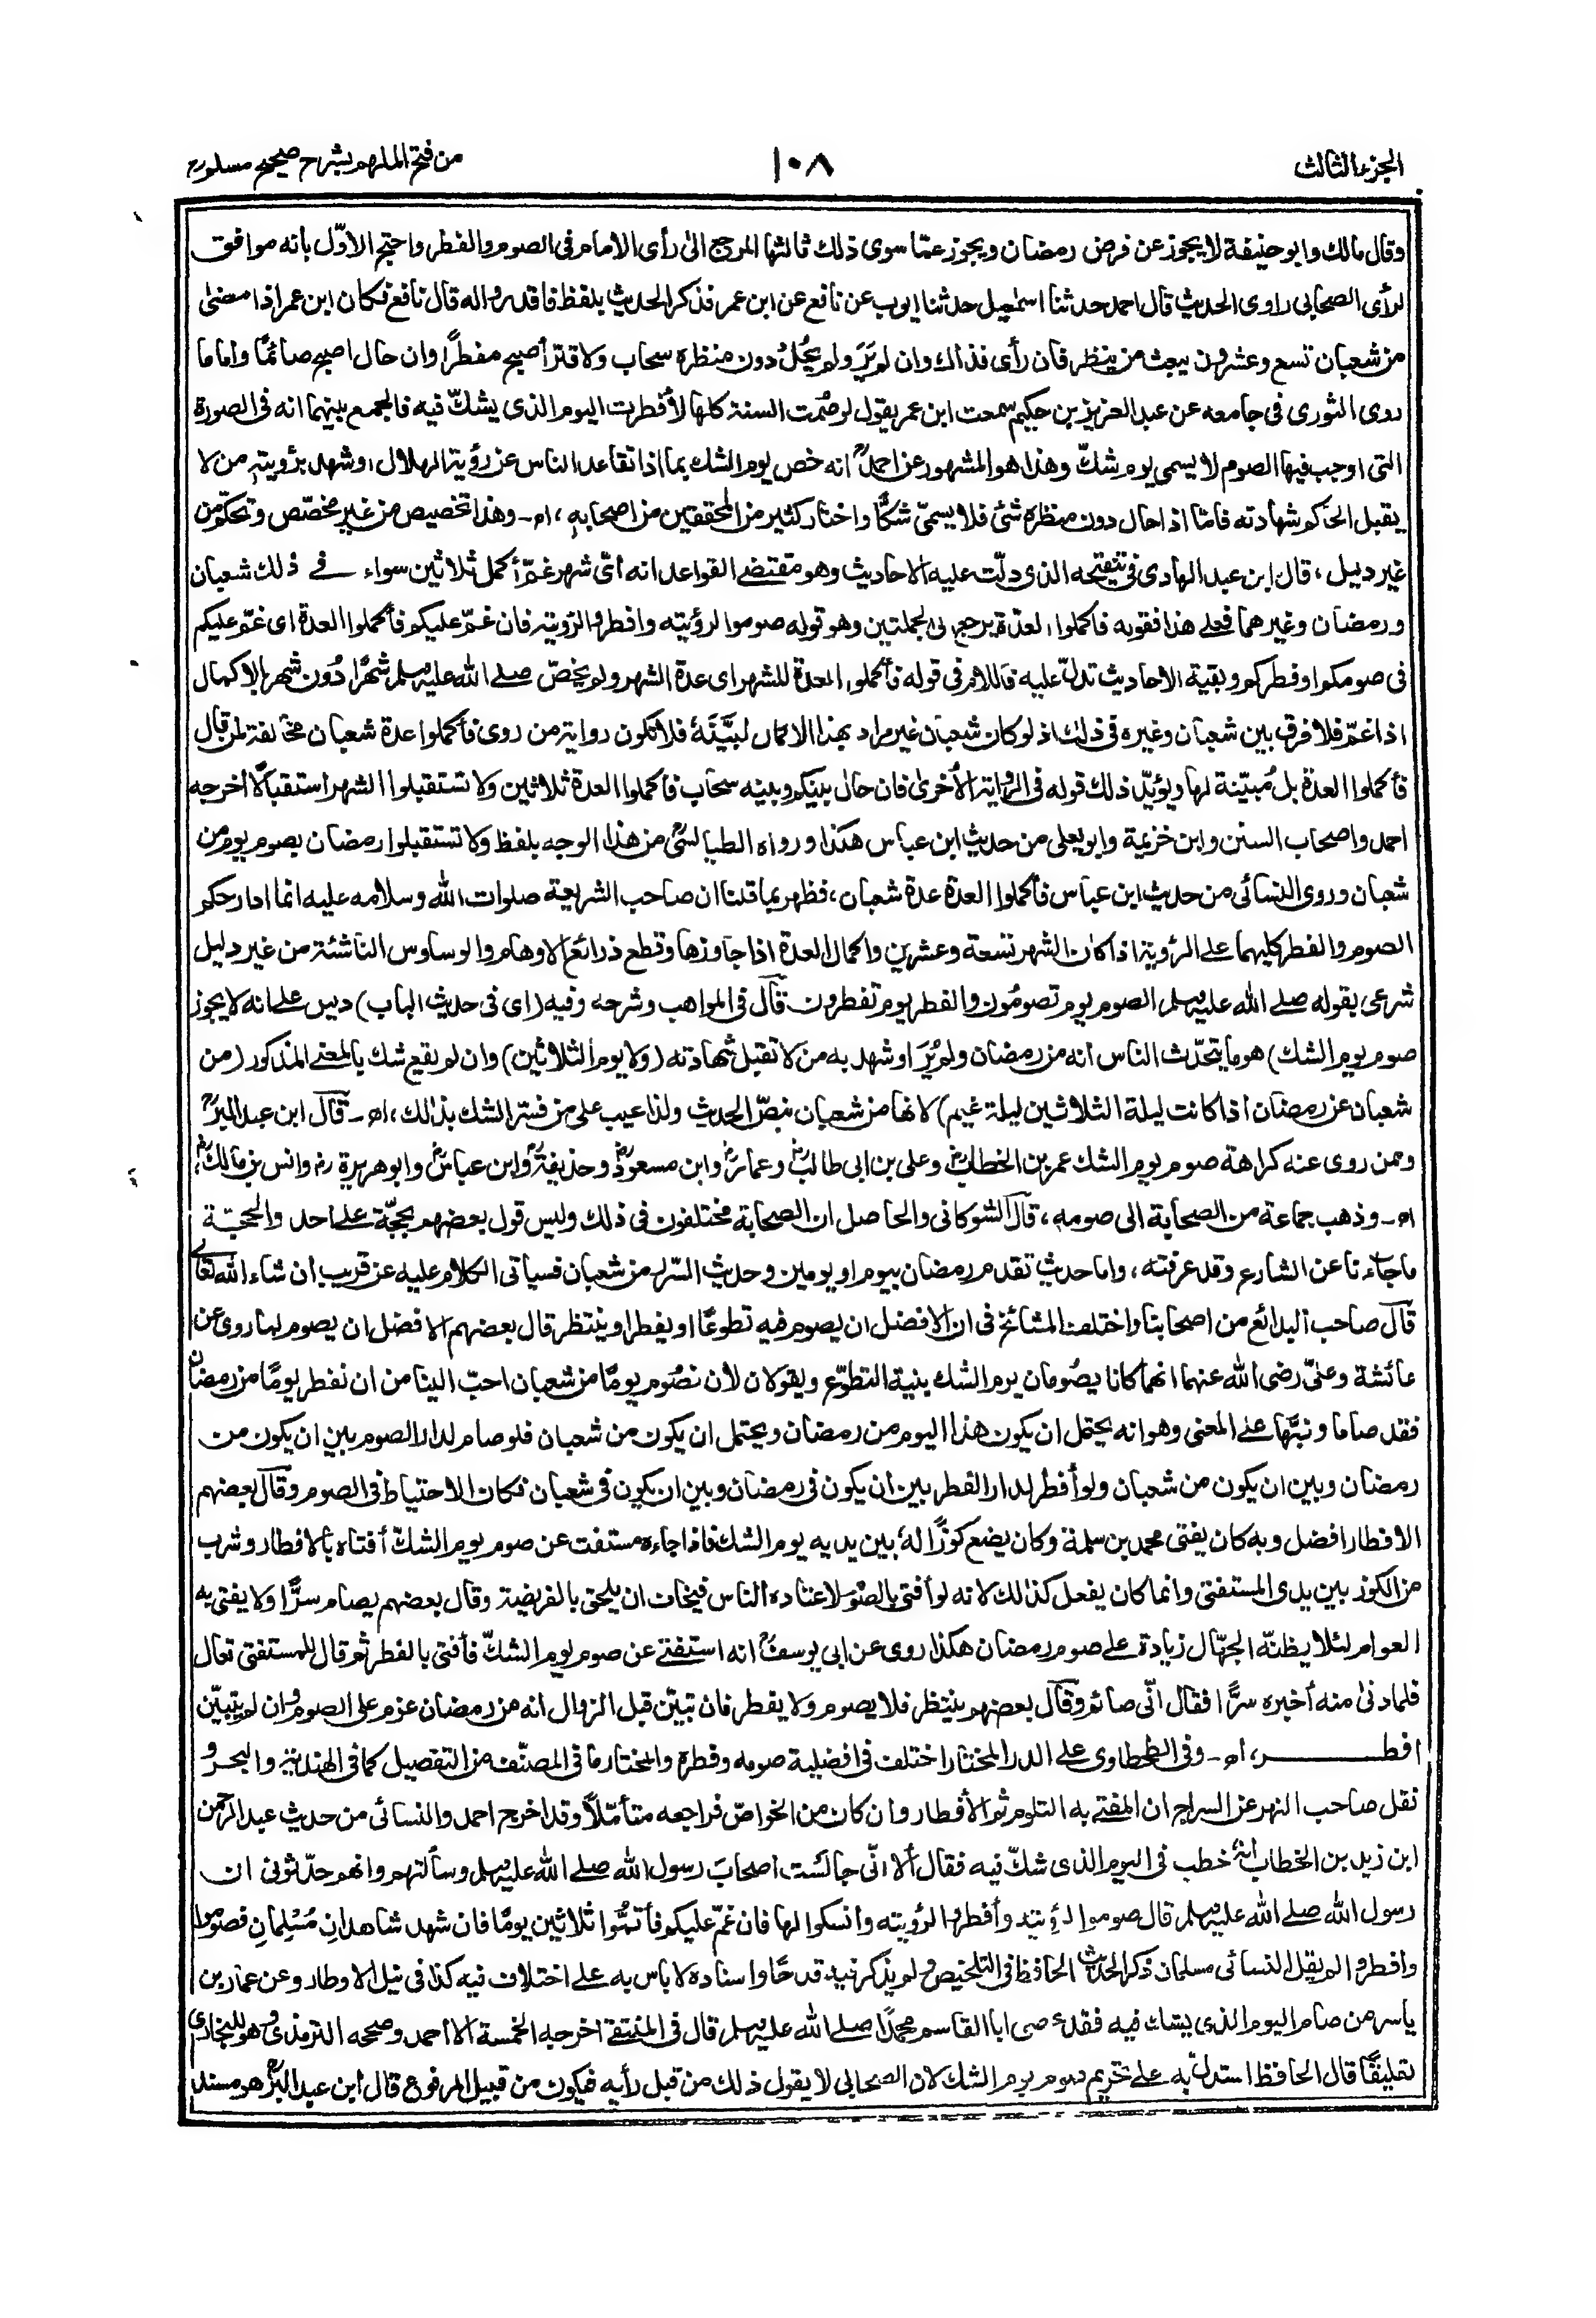 الجزء الثالث
١٠٨
من فتح الملهم بشرح صحيح مسلم
وقال مالك وابو حنيفة لا يجوز عن فرض رمضان ويجوز عمّا سوى ذلك ثالثها المرجع الى رأى الامام فى الصوم والفطر واحتج الاوّل بانه موافق
لرأى الصحابى راوى الحديث قال احمد حدثنا اسمٰعيل حدثنا ايوب عن نافع عن ابن عمر فذكر الحديث بلفظ فاقدروا له قال نافع فكان ابن عمر اذا مضىٰ
من شعبان تسع وعشرون يبعث من ينظر فان رأى فذاك وان لم يَرَ ولم يَحُلْ دون منظره سحاب ولا قتر أصبح مفطرًا وان حال اصبح صائمًا واما ما
روى الثورى فى جامعه عن عبد العزيز بن حكيم سمعت ابن عمر يقول لو صُمت السنة كلها لأفطرت اليوم الذى يشكّ فيه فالجمع بينهما انه فى الصورة
التى اوجب فيها الصوم لا يسمى يوم شكّ وهذا هو المشهور عن احمدؒ انه خص يوم الشك بما اذا تقاعد الناس عن رؤية الهلال، او شهد برؤيته من لا
يقبل الحاكم شهادته فامّا اذا حال دون منظره شئ فلا يسمىّ شكًّا واختار كثير من المحققين من اصحابه، اه- وهذا تخصيص من غير مخصّص وتحكم من
غير دليل، قال ابن عبد الهادى فى تنقيحه الذى دلّت عليه الاحاديث وهو مقتضے القواعد انه أىّ شهر غمّ أكمل ثلاثين سواء فے ذلك شعبان
ورمضان وغيرهما فعلے هذا فقوله فاكملوا العدّة يرجع الى الجملتين وهو قوله صوموا لرؤيته وافطروا لرؤيته فان غمّ عليكم فأكملوا العدة اى غمّ عليكم
فى صومكم او فطركم وبقية الاحاديث تدلّ عليه فاللام فى قوله فأكملوا العدة للشهر اى عدة الشهر ولم يخصّ صلے الله عليه وسلم شهرًا دُون شهر بالاكمال
اذا غمّ فلا فرق بين شعبان وغيره فى ذلك اذ لو كان شعبان غير مراد بهذا الاكمال لبيَّنَهُ فلا تكون رواية من روى فأكملوا عدة شعبان مخالفة لمن قال
فأكملوا العدة بل مُبيّنة لها ويؤيّد ذلك قوله فى الرواية الأخرىٰ فان حال بينكم وبينه سحاب فأكملوا العدة ثلاثين ولا تستقبلوا الشهر استقبالًا أخرجه
احمد واصحاب السنن وابن خزيمة وابو يعلى من حديث ابن عباس هكذا ورواه الطيالسىؒ من هذا الوجه بلفظ ولا تستقبلوا رمضان بصوم يوم من
شعبان وروى النسائى من حديث ابن عباس فأكملوا العدة عدة شعبان، فظهر بما قلنا ان صاحب الشريعة صلوات الله وسلامه عليه انما ادار حكم
الصوم والفطر كليهما على الرؤية اذا كان الشهر تسعة وعشرين واكمال العدة اذا جاوزها وقطع ذرائع الاوهام والوساوس الناشئة من غير دليل
شرعى بقوله صلے الله عليه وسلم الصوم يوم تصومُون والفطر يوم تفطرون قال فى المواهب وشرحه وفيه (اى فى حديث الباب) دليل علے انه لا يجوز
صوم يوم الشك) هو ما يتحدّث الناس انه من رمضان ولم يُرَ او شهد به من لا تقبل شهادته (ولا يوم الثلاثين) وان لم يقع شك بالمعنے المذكور (من
شعبان عن رمضان اذا كانت ليلة الثلاثين ليلة غيم) لانها من شعبان بنصّ الحديث ولذا عيب على من فسّر الشك بذلك، اه- قال ابن عبد البرؒ
وممن روى عنه كراهة صوم يوم الشك عمر بن الخطابؓ وعلى بن ابى طالبؓ وعمارؓ وابن مسعودؓ وحذيفةؓ وابن عباسؓ وابو هريرةؓ وانس بن مالكؓ
اه- وذهب جماعة من الصحابة الى صومه، قال الشوكانى والحاصل ان الصحابة مختلفون فى ذلك وليس قول بعضهم بحجّة علے احد والحجّة
ما جاءنا عن الشارع وقد عرفته، واما حديث تقدم رمضان بيوم او يومين وحديث السّرر من شعبان فسياتى الكلام عليه عن قريب ان شاء الله تعالےٰ
قال صاحب البدائع من اصحابنا واختلف المشائخ فى ان الافضل ان يصوم فيه تطوعًا او يفطر او ينتظر قال بعضهم الافضل ان يصوم لما روى عن
عائشة وعلىّ رضى الله عنهما انهما كانا يصُومان يوم الشك بنية التطوّع ويقولان لأن نصُوم يومًا من شعبان احبّ الينا من ان نفطر يومًا من رمضان
فقد صاما ونبَّها علے المعنى وهو انه يحتمل ان يكون هذا اليوم من رمضان ويحتمل ان يكون من شعبان فلو صام لدار الصوم بين ان يكون من
رمضان وبين ان يكون من شعبان ولو أفطر لدار الفطر بين ان يكون فى رمضان وبين ان يكون فى شعبان فكان الاحتياط فى الصوم وقال بعضهم
الافطار افضل وبه كان يفتى محمد بن سلمة وكان يضع كوزًا لهٗ بين يديه يوم الشك فاذا جاءه مستفت عن صوم يوم الشكّ أفتاه بالافطار وشرب
من الكوز بين يدى المستفتى وانما كان يفعل كذلك لانه لو أفتى بالصوم لاعتاده الناس فيخاف ان يلحق بالفريضة وقال بعضهم يصام سرًّا ولا يفتى به
العوام لئلا يظنّه الجهّال زيادة علے صوم رمضان هكذا روى عن ابى يوسفؒ انه استفتے عن صوم يوم الشكّ فأفتى بالفطر ثم قال للمستفتى تعال
فلما دنىٰ منه أخبره سرًّا فقال انّى صائم وقال بعضهم ينتظر فلا يصوم ولا يفطر فان تبيّن قبل الزوال انه من رمضان عزم على الصوم وان لم يتبيّن
افطر، اه- وفى الطحطاوى علے الدر المختار اختلف فى افضلية صومه وفطره والمختار ما فى المصنّف من التفصيل كما فى الهندية والبحر و
نقل صاحب النهر عن السراج ان المفتے به التلوم ثم الأفطار وان كان من الخواصّ فراجعه متأمّلًا وقد اخرج احمد والنسائى من حديث عبد الرحمن
ابن زيد بن الخطاب انهٗ خطب فى اليوم الذى شكّ فيه فقال ألا انّى جالست اصحابَ رسول الله صلے الله عليه وسلم وسألتهم وانهم حدّثونى ان
رسول الله صلے الله عليه وسلم قال صوموا لرؤيته وأفطروا لرؤيته وانسكوا لها فان غمّ عليكم فأتمُّوا ثلاثين يومًا فان شهد شاهدانِ مُسْلِمانِ فصوموا
وافطروا لم يقل النسائى مسلمان ذكر الحديث الحافظ فى التلخيص ولم يذكر فيه قدحًا واسناده لا باس به علے اختلاف فيه كذا فى نيل الاوطار وعن عمار بن
ياسر من صام اليوم الذى يشك فيه فقد عصى ابا القاسم محمدًا صلے الله عليه وسلم قال فى المنتقے اخرجه الخمسة الا احمد وصححه الترمذى وهو للبخارى
تعليقًا قال الحافظ استدلّ به علے تحريم صوم يوم الشك لان الصحابى لا يقول ذلك من قبل رأيه فيكون من قبيل المرفوع قال ابن عبد البرؒ هو مسند